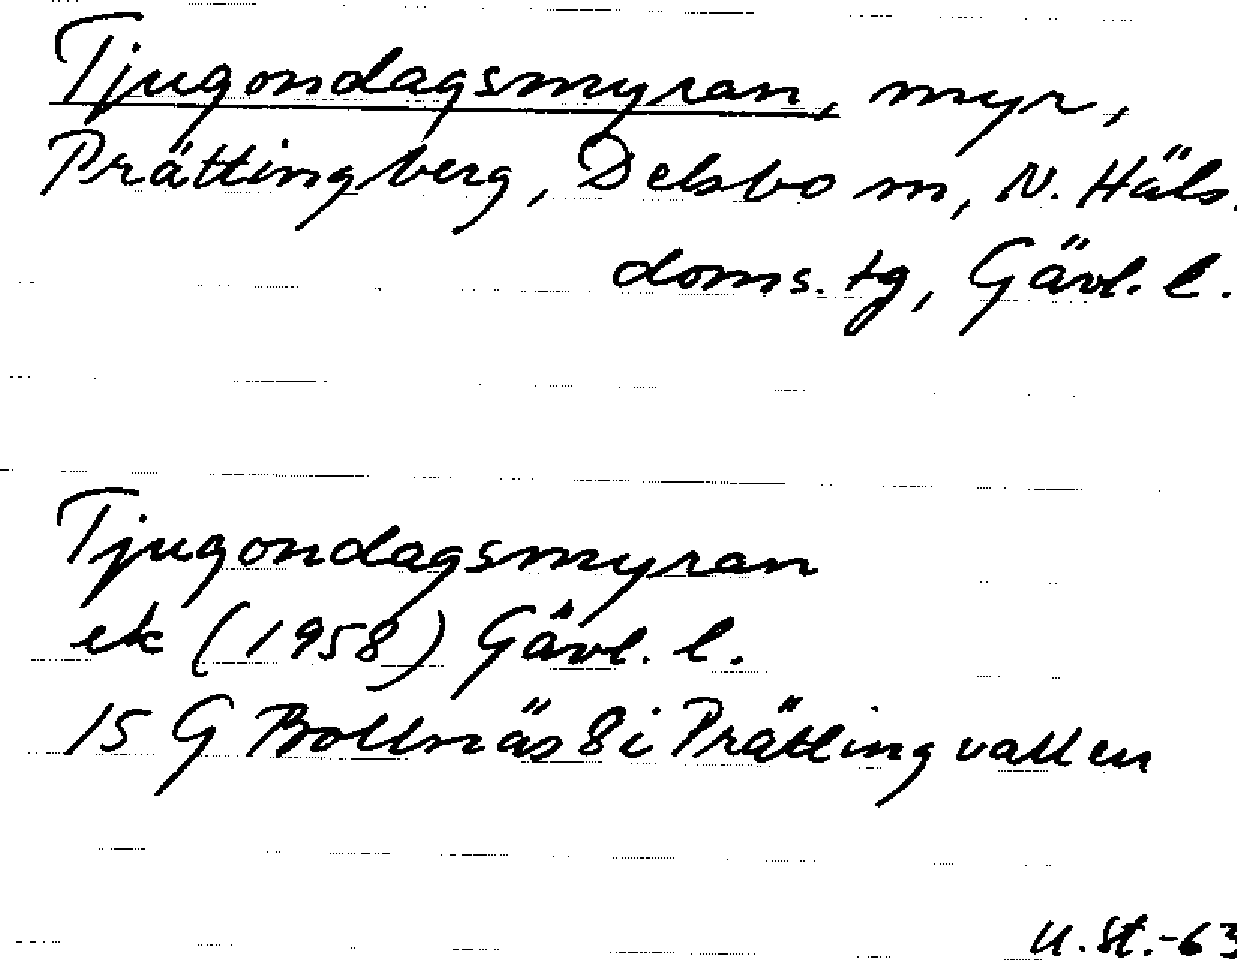 Tjugondagsmyran, myr,
Prättingberg, Delsbo sn, N. Häls.
doms. tg, Gävl. l.
Tjugondagsmyran
ek (1958) Gävl. l.
15 G Bollnäs 8 i Prättingvallen
U. St.-63